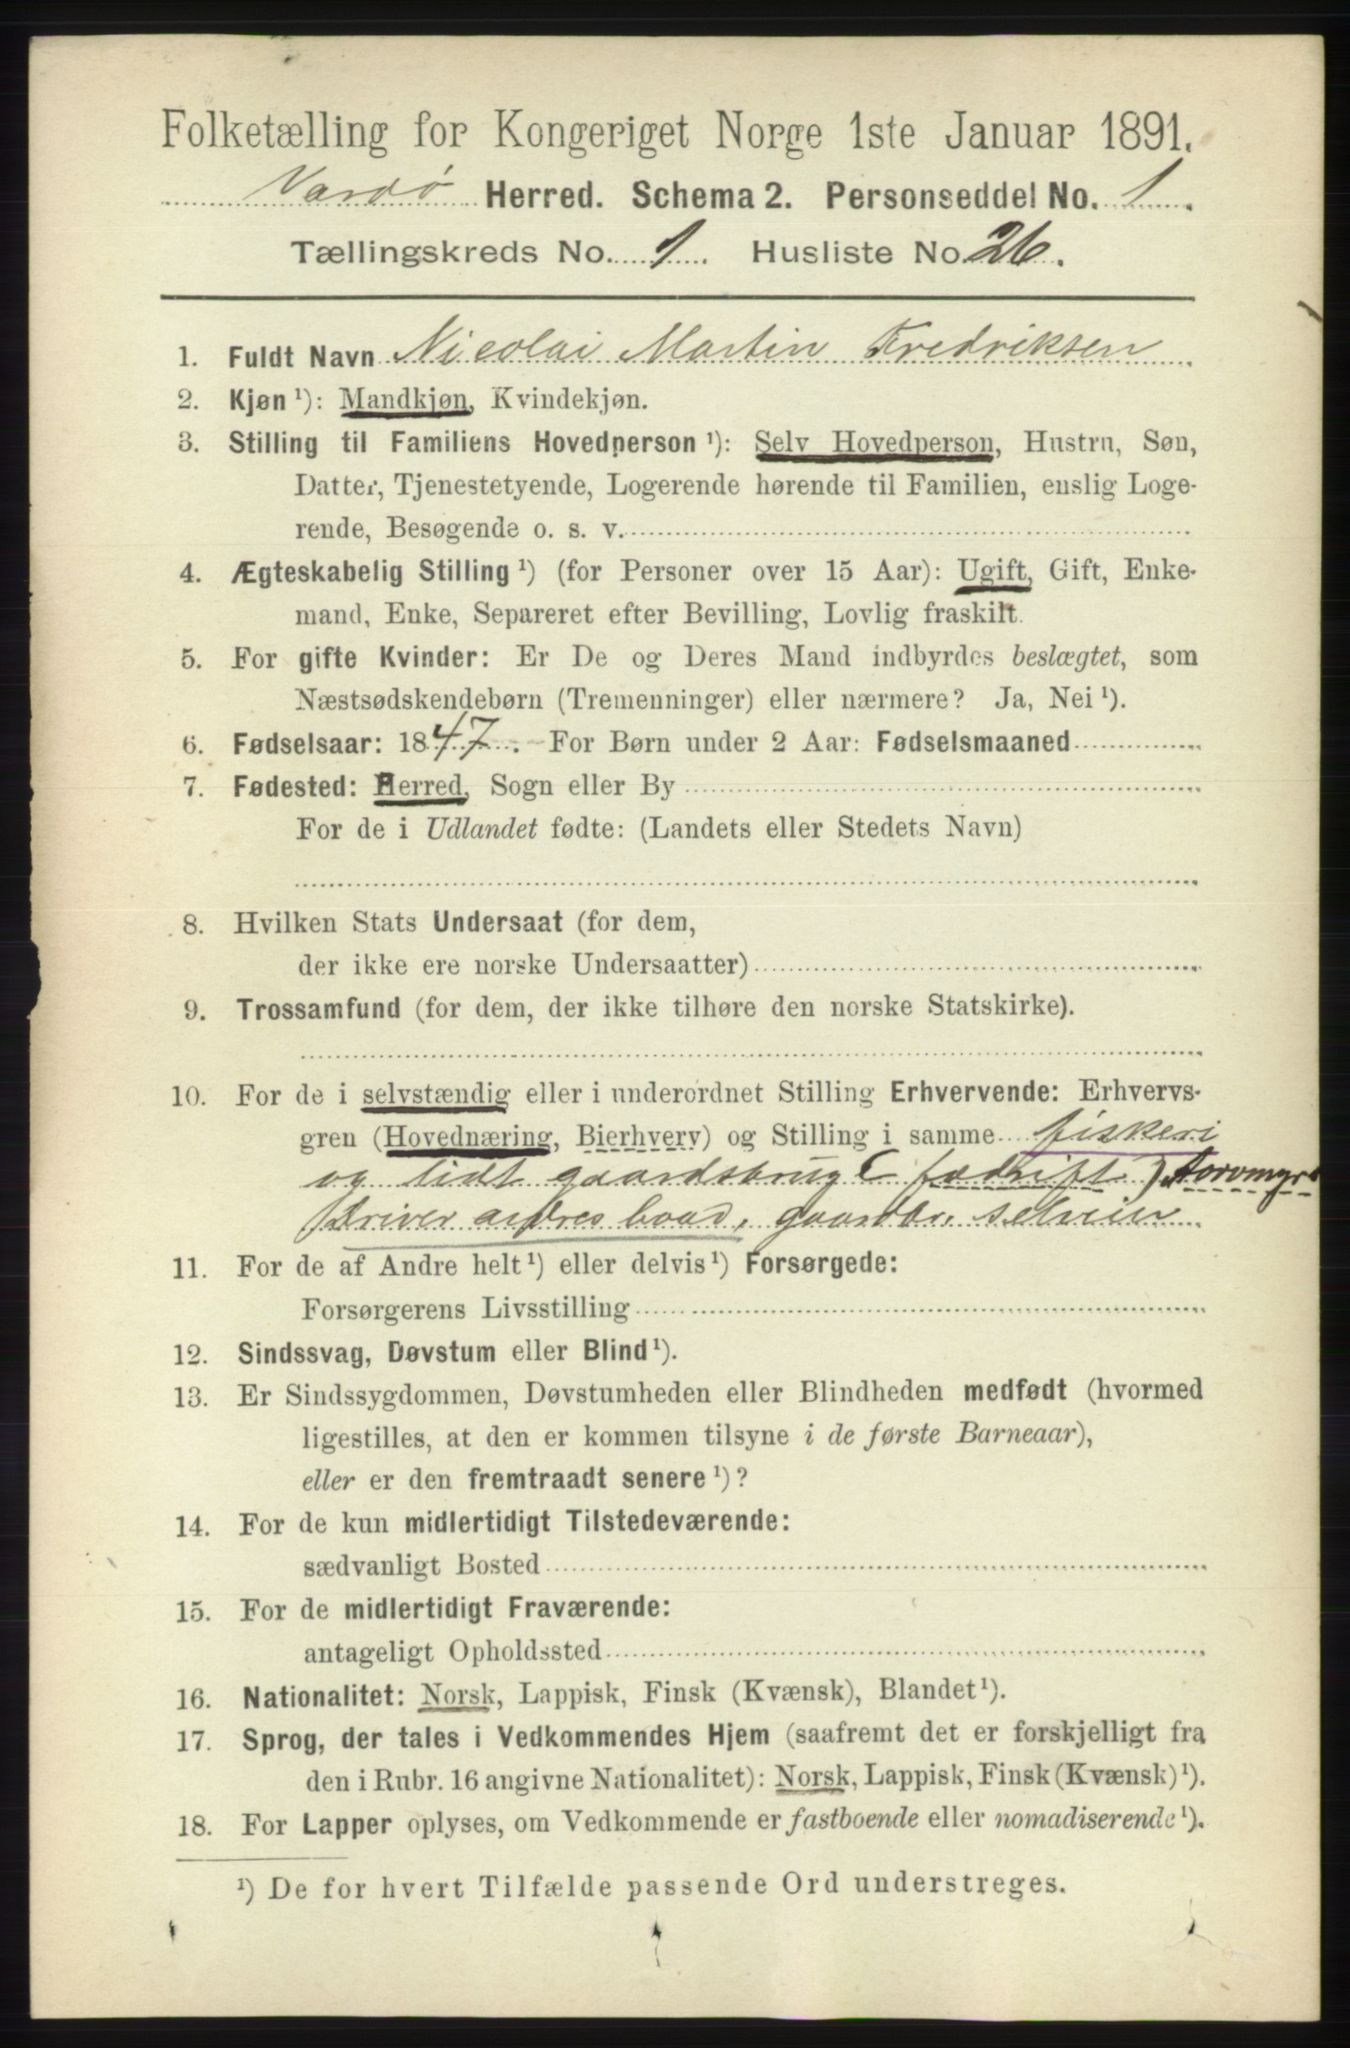 Folketælling for Kongeriget Norge 1ste Januar 1891.
Vardø Herred. Schema 2. Personseddel No. 1.
Tællingskreds No. 1. Husliste No. 26.
1. Fuldt Navn Nicolai Martin Fredriksen
2. Kjøn ¹): Mandkjøn, Kvindekjøn.
3. Stilling til Familiens Hovedperson ¹): Selv Hovedperson, Hustru, Søn,
Datter, Tjenestetyende, Logerende hørende til Familien, enslig Loge-
rende, Besøgende o. s. v.
4. Ægteskabelig Stilling ¹) (for Personer over 15 Aar): Ugift, Gift, Enke-
mand, Enke, Separeret efter Bevilling, Lovlig fraskilt.
5. For gifte Kvinder: Er De og Deres Mand indbyrdes beslægtet, som
Næstsødskendebørn (Tremenninger) eller nærmere? Ja, Nei ¹).
6. Fødselsaar: 1847. For Børn under 2 Aar: Fødselsmaaned
7. Fødested: Herred, Sogn eller By
For de i Udlandet fødte: (Landets eller Stedets Navn)
8. Hvilken Stats Undersaat (for dem,
der ikke ere norske Undersaatter)
9. Trossamfund (for dem, der ikke tilhøre den norske Statskirke).
10. For de i selvstændig eller i underordnet Stilling Erhvervende: Erhvervs-
gren (Hovednæring, Bierhverv) og Stilling i samme fiskeri
og lidt gaardsbrug (fædrift) Torvmyr
Driver andres baad, gaardbr. selveier
11. For de af Andre helt ¹) eller delvis ¹) Forsørgede:
Forsørgerens Livsstilling
12. Sindssvag, Døvstum eller Blind ¹).
13. Er Sindssygdommen, Døvstumheden eller Blindheden medfødt (hvormed
ligestilles, at den er kommen tilsyne i de første Barneaar),
eller er den fremtraadt senere ¹)?
14. For de kun midlertidigt Tilstedeværende:
sædvanligt Bosted
15. For de midlertidigt Fraværende:
antageligt Opholdssted
16. Nationalitet: Norsk, Lappisk, Finsk (Kvænsk), Blandet ¹).
17. Sprog, der tales i Vedkommendes Hjem (saafremt det er forskjelligt fra
den i Rubr. 16 angivne Nationalitet): Norsk, Lappisk, Finsk (Kvænsk) ¹).
18. For Lapper oplyses, om Vedkommende er fastboende eller nomadiserende ¹).
¹) De for hvert Tilfælde passende Ord understreges.